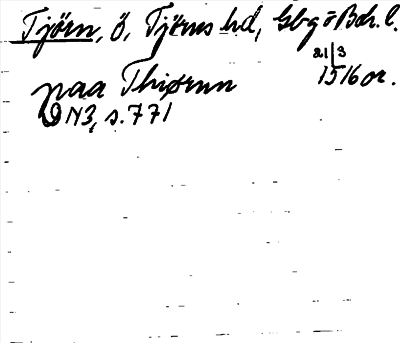 Tjörn, ö, Tjörns hd, Gbg o Boh. l.
21/3
paa Thiørnn 1516 or.
DN3, s. 771